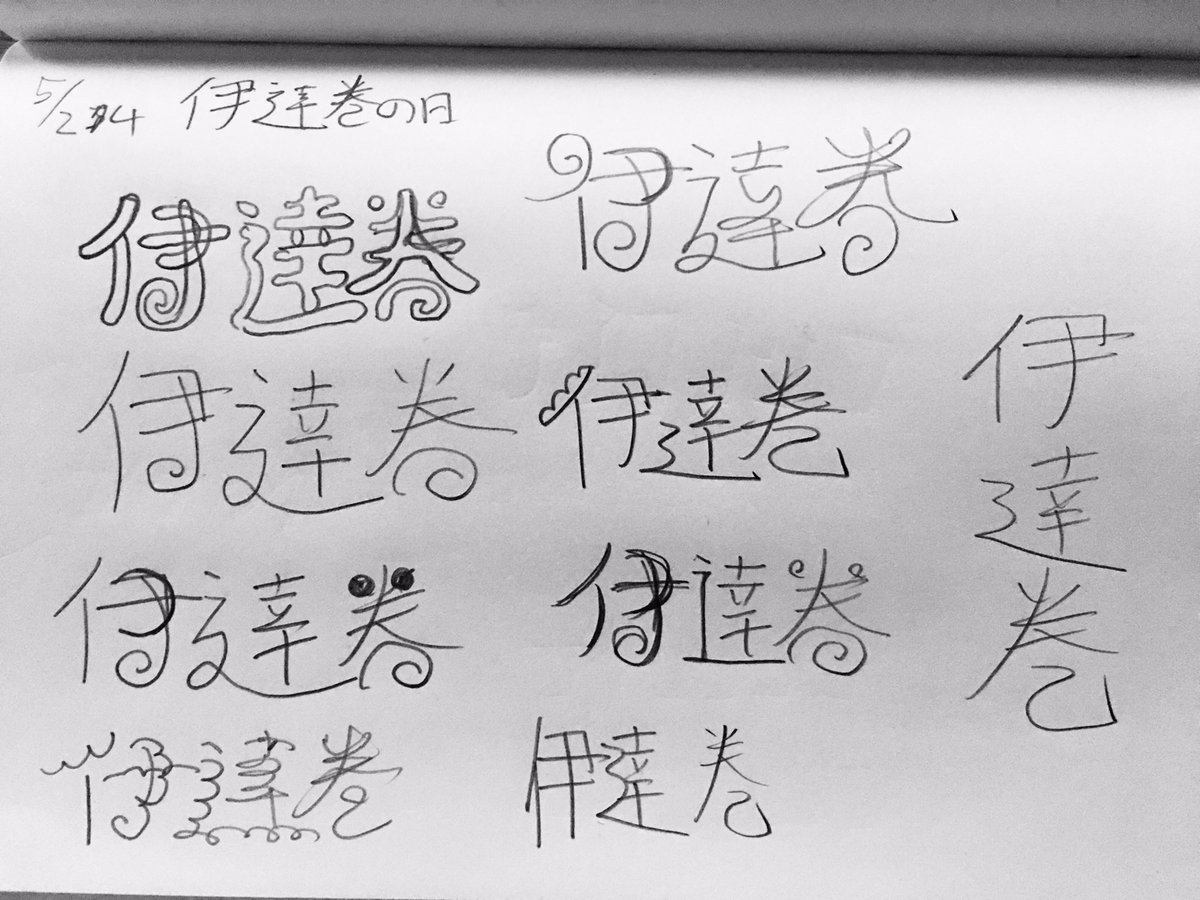 5/24 伊達巻の日
伊達巻
伊達巻
伊達巻
伊達巻
伊達巻
伊達巻
伊達巻
伊達巻
伊達巻